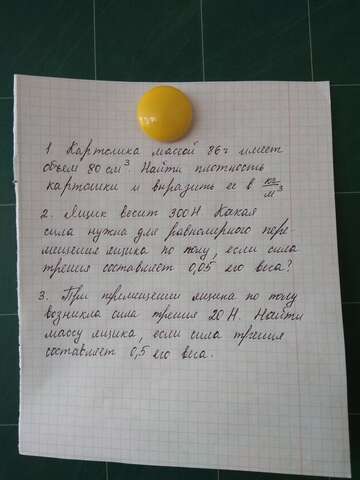 1. Картошка массой 86 г имеет
объем 80 см³. Найти плотность
картошки и выразить ее в кг/м³
2. Ящик весит 300 Н. Какая
сила нужна для равномерного пере-
мещения ящика по полу, если сила
трения составляет 0,05 его веса?
3. При премещении ящика по полу
возникла сила трения 20 Н. Найти
массу ящика, если сила трения
составляет 0,5 его веса.